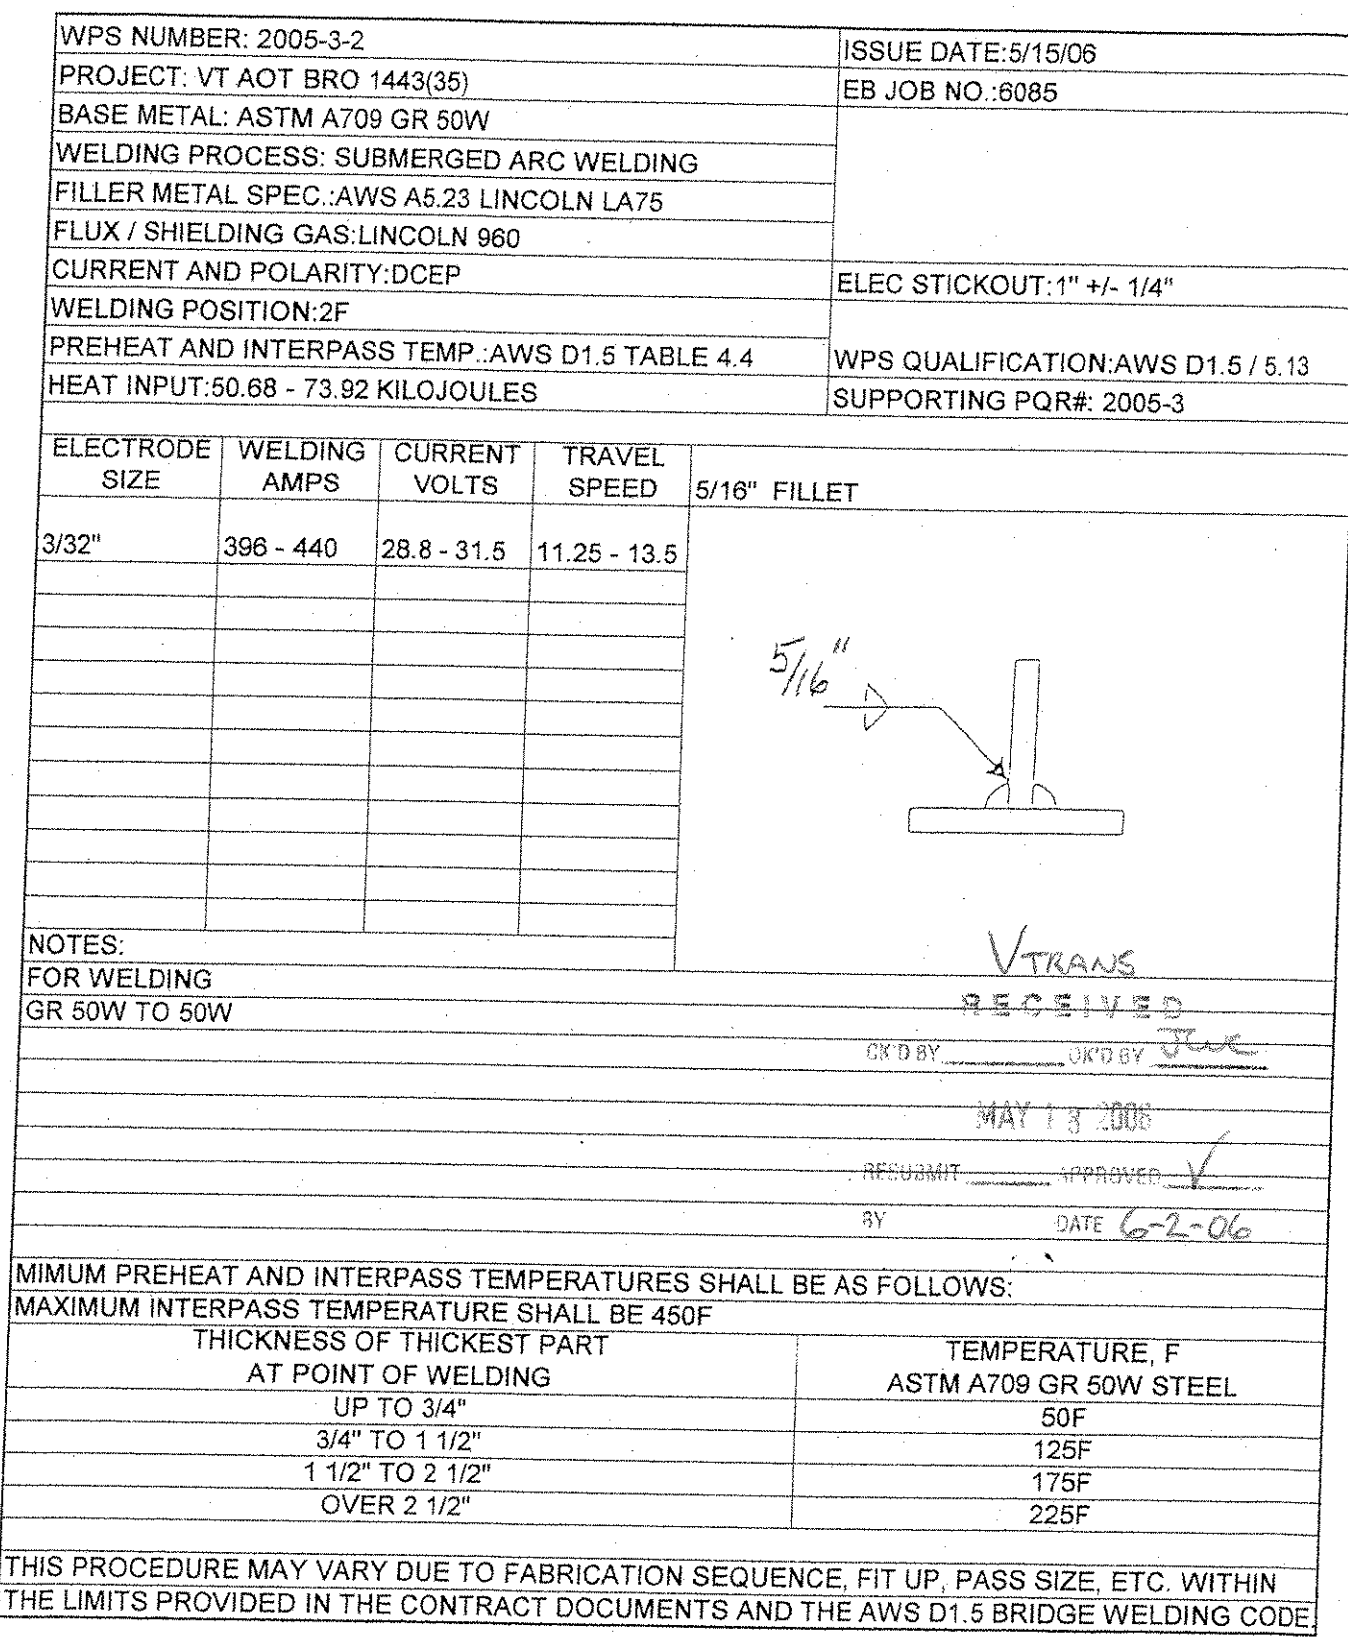 WPS NUMBER: 2005-3-2
ISSUE DATE:5/15/06
PROJECT: VT AOT BRO 1443(35)
EB JOB NO.:6085
BASE METAL: ASTM A709 GR 50W
WELDING PROCESS: SUBMERGED ARC WELDING
FILLER METAL SPEC.:AWS A5.23 LINCOLN LA75
FLUX / SHIELDING GAS:LINCOLN 960
CURRENT AND POLARITY:DCEP
ELEC STICKOUT:1" +/- 1/4"
WELDING POSITION:2F
PREHEAT AND INTERPASS TEMP.:AWS D1.5 TABLE 4.4
WPS QUALIFICATION:AWS D1.5 / 5.13
HEAT INPUT:50.68 - 73.92 KILOJOULES
SUPPORTING PQR#: 2005-3
ELECTRODE SIZE
WELDING AMPS
CURRENT VOLTS
TRAVEL SPEED
5/16" FILLET
3/32"
396 - 440
28.8 - 31.5
11.25 - 13.5
5/16"
NOTES:
FOR WELDING
GR 50W TO 50W
VTRANS
RECEIVED
CK'D BY OK'D BY
MAY 18 2006
RESUBMIT APPROVED ✓
BY DATE 6-2-06
MIMUM PREHEAT AND INTERPASS TEMPERATURES SHALL BE AS FOLLOWS:
MAXIMUM INTERPASS TEMPERATURE SHALL BE 450F
THICKNESS OF THICKEST PART
AT POINT OF WELDING
TEMPERATURE, F
ASTM A709 GR 50W STEEL
UP TO 3/4"
50F
3/4" TO 1 1/2"
125F
1 1/2" TO 2 1/2"
175F
OVER 2 1/2"
225F
THIS PROCEDURE MAY VARY DUE TO FABRICATION SEQUENCE, FIT UP, PASS SIZE, ETC. WITHIN
THE LIMITS PROVIDED IN THE CONTRACT DOCUMENTS AND THE AWS D1.5 BRIDGE WELDING CODE.